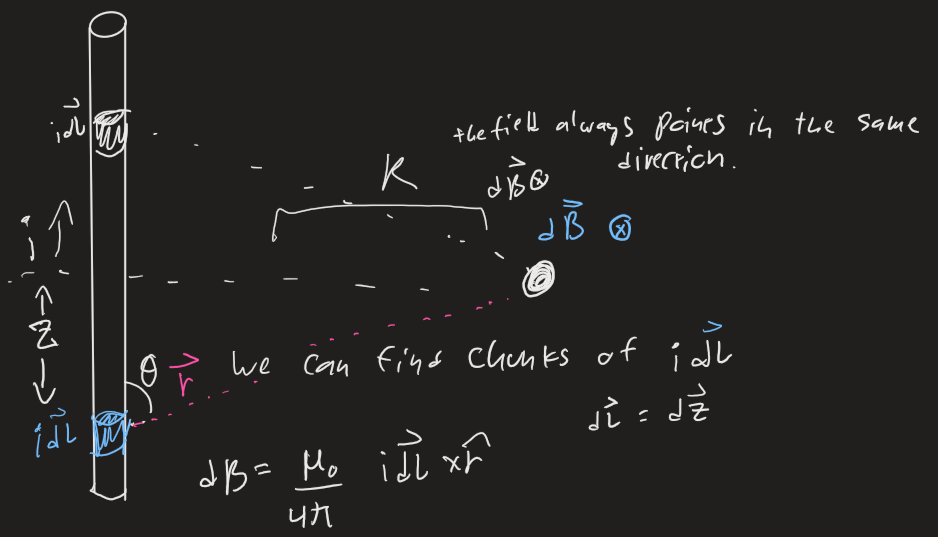 i dL⃗
the field always points in the same
direction.
R
dB⃗ ⊗
dB⃗ ⊗
i ↑
Z
θ
r⃗
We can find chunks of i dL⃗
dL⃗ = dZ⃗
i dL⃗
dB = μ₀/4π i dL⃗ × r̂